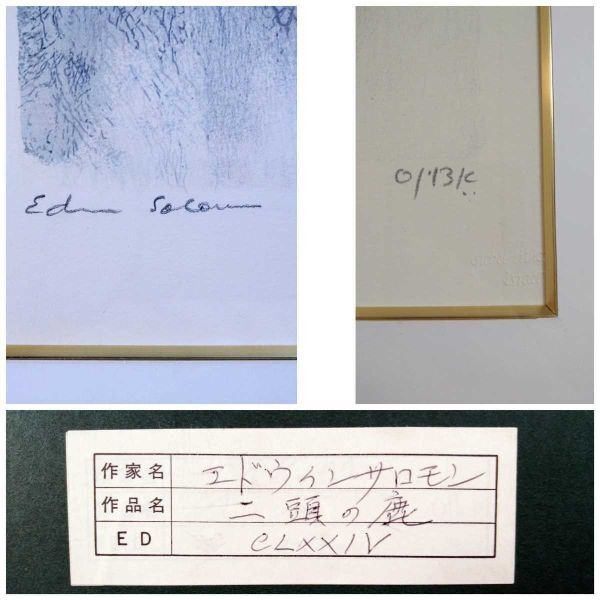 Edwin Salomon
作家名 エドウィンサロモン
作品名 二頭の鹿
ED CLXXIV